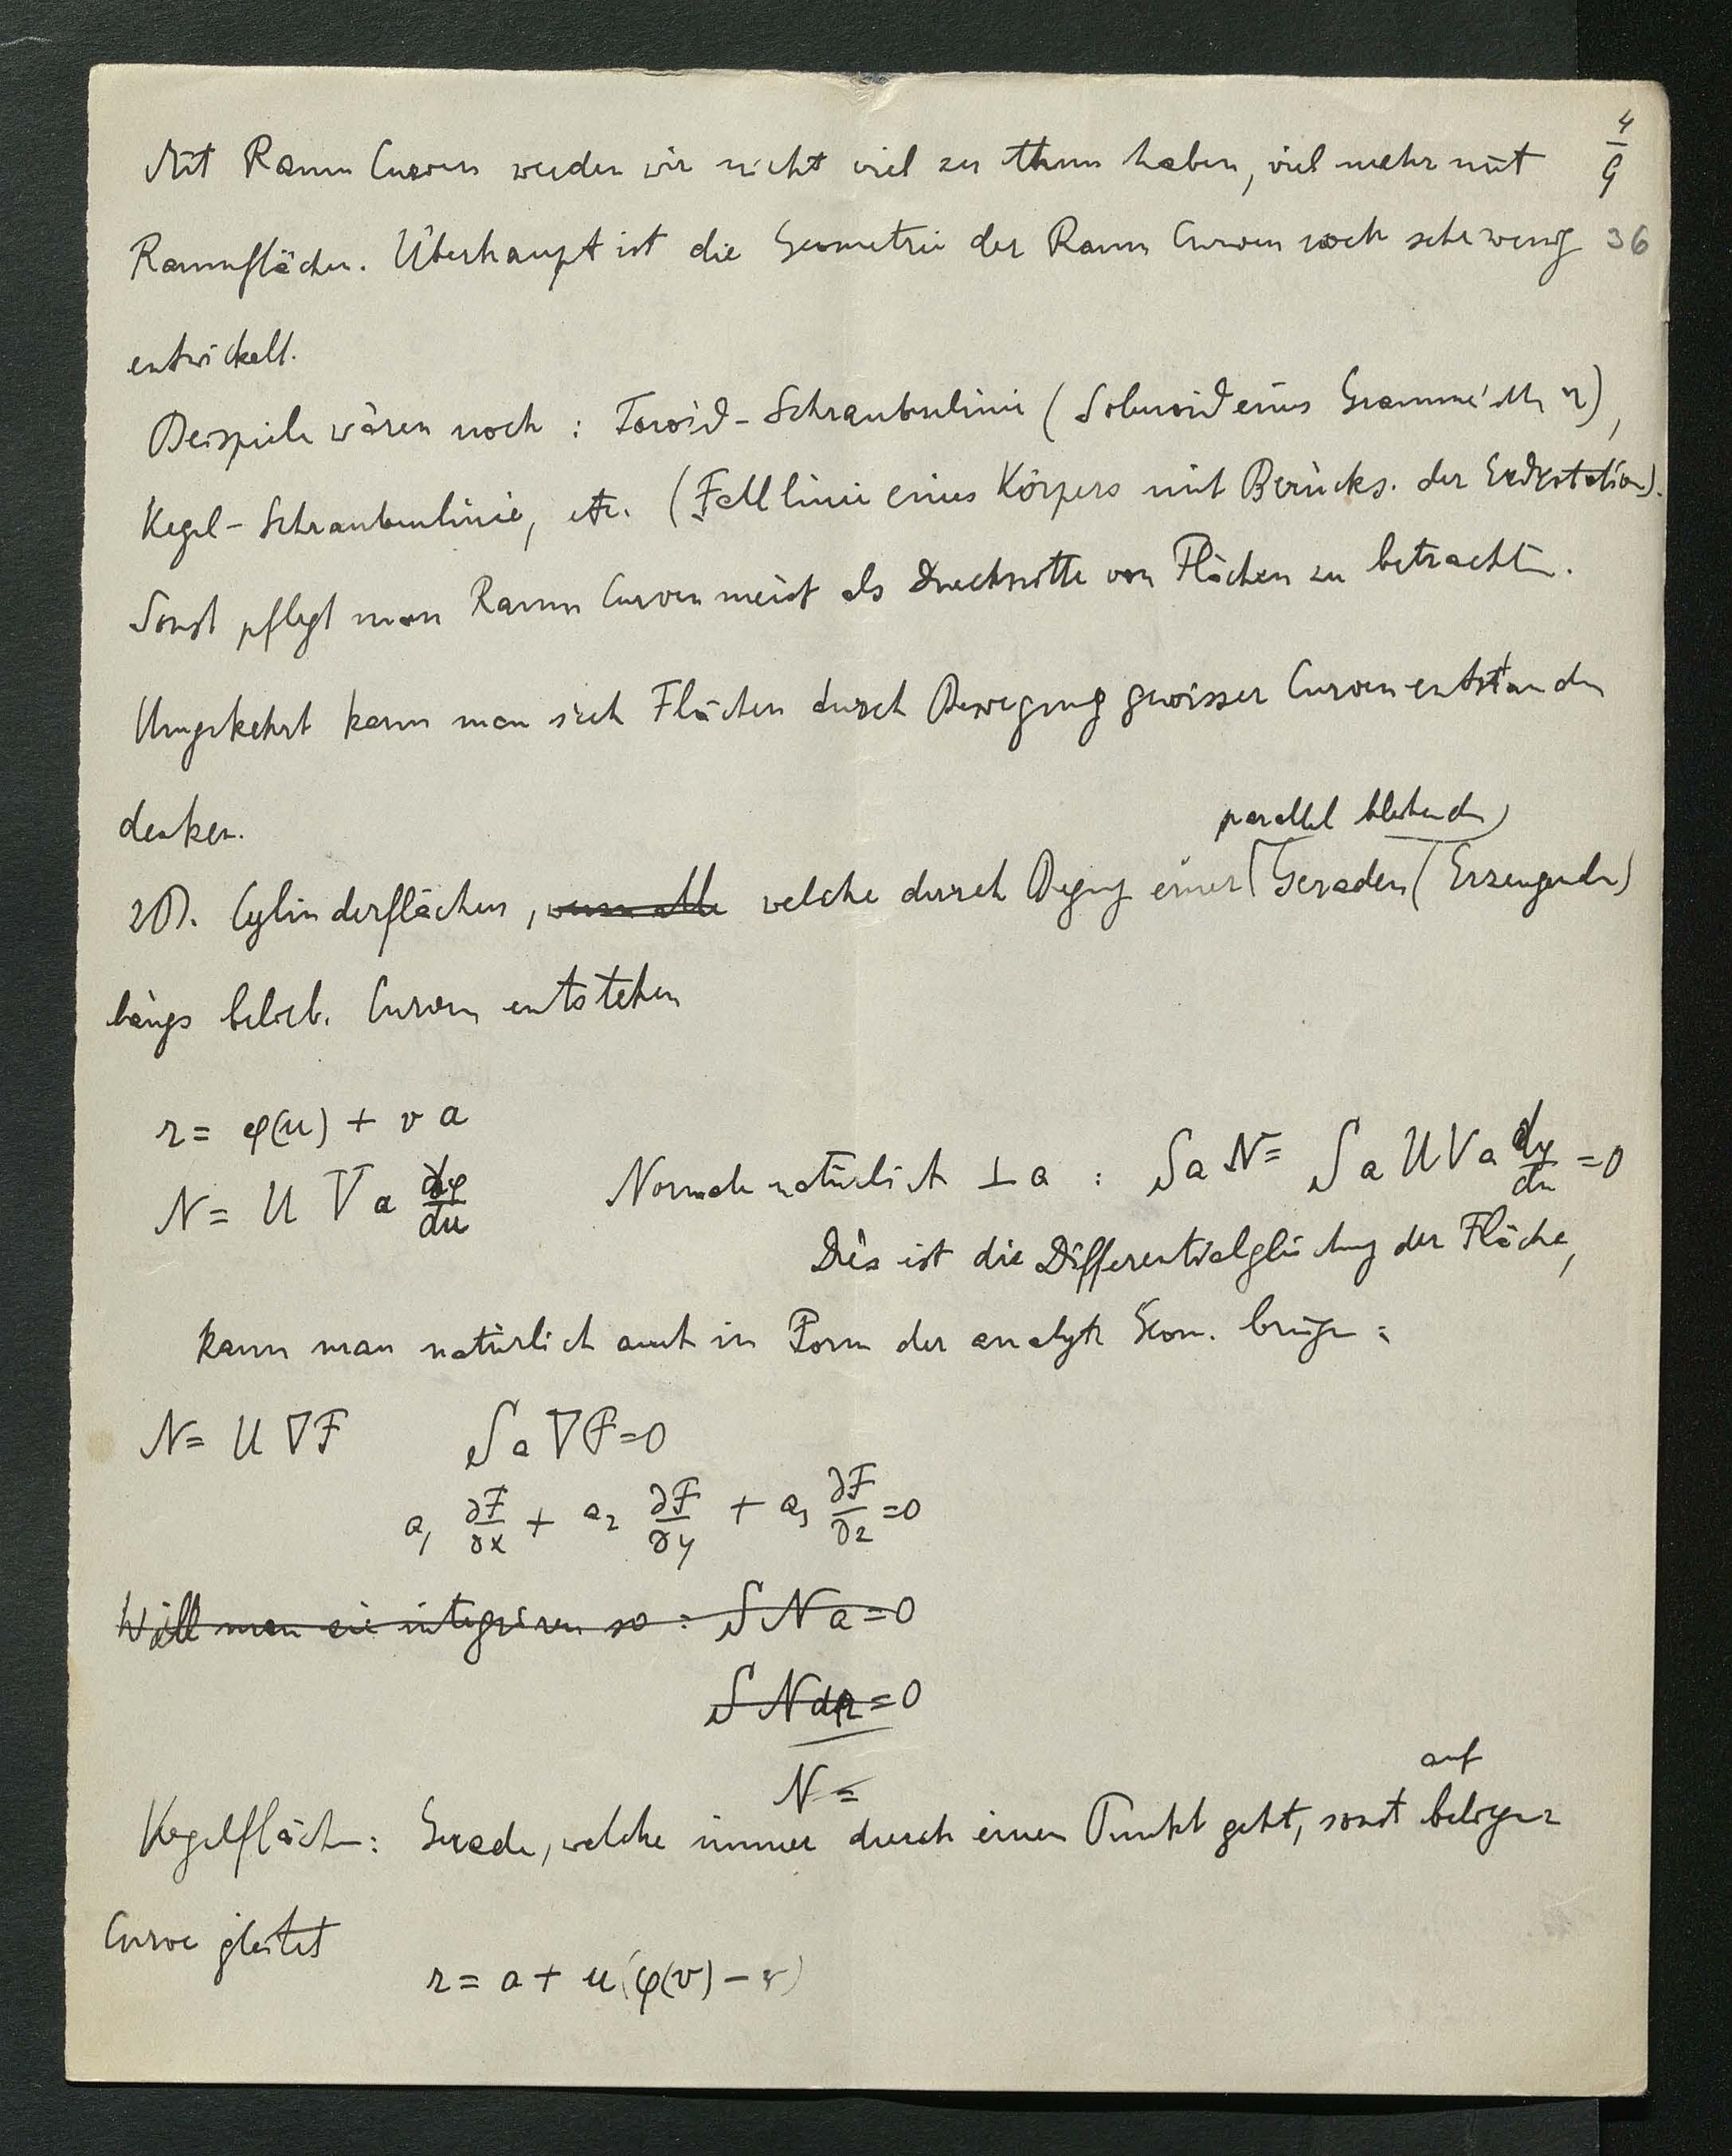 4/9
Mit Raum Curven werden wir nicht viel zu thun haben, viel mehr mit
Raumflächen. Überhaupt ist die Geometrie der Raum Curven noch sehr wenig 36
entwickelt.
Beispiele wären noch : Toroid-Schraubenlinie (Solenoid eines Gramme'),
Kegel-Schraubenlinie, etc. (Falllinie eines Körpers mit Berücks. der Erdrotation).
Sonst pflegt man Raum Curven meist als Durchschnitte von Flächen zu betrachten.
Umgekehrt kann man sich Flächen durch Bewegung gewisser Curven entstanden
denken.
parallel bleibenden
zB. Cylinderflächen, welche durch Begng einer Geraden (Erzeugenden)
längs belieb. Curven entstehen
r = φ(u) + v a
N = U V a dφ/du Normale natürlich ⊥ a : S a N = S a U V a dφ/du = 0
Dies ist die Differentialgleichung der Fläche,
kann man natürlich auch in Form der analyt. Geom. bringen :
N = U ∇F S a ∇F = 0
a₁ ∂F/∂x + a₂ ∂F/∂y + a₃ ∂F/∂z = 0
Will man sie integriren so : S N a = 0
S N dr = 0
N =
auf
Kegelflächen : Gerade, welche immer durch einen Punkt geht, sonst beliebiger
Curve gleitet
r = a + u (φ(v) – )